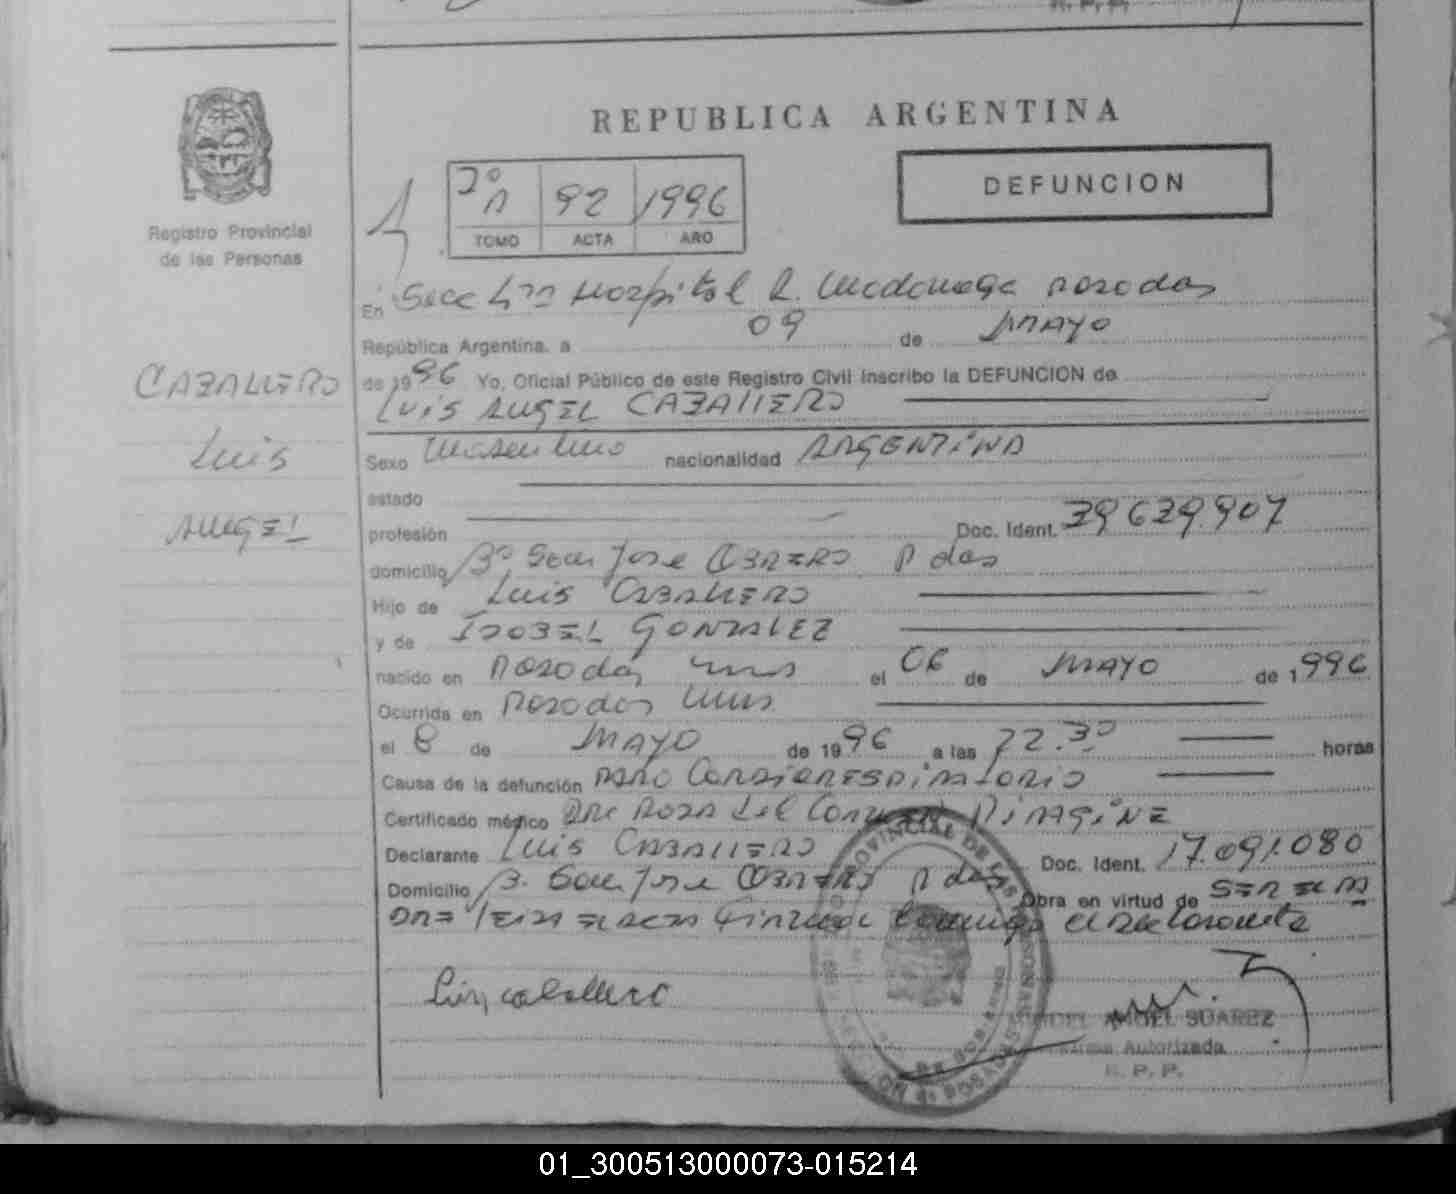 REPUBLICA ARGENTINA
DEFUNCION
2º 92 1996
TOMO ACTA AÑO
Registro Provincial
de las Personas
En Secc 4ta Hospital R. Madariaga Posadas
República Argentina, a 09 de MAYO
CABALLERO
Luis
ANGEL
de 1996 Yo, Oficial Público de este Registro Civil inscribo la DEFUNCION de
LUIS ANGEL CABALLERO
Sexo Masculino nacionalidad ARGENTINA
estado
profesión Doc. Ident. 39.639.907
domicilio Bº San Jose OBRERO Pdas
Hijo de Luis CABALLERO
y de ISABEL GONZALEZ
nacido en Posadas Mnes el 06 de MAYO de 1996
Ocurrida en Posadas Mnes
el 8 de MAYO de 1996 a las 22.30 horas
Causa de la defunción PARO CARDIORESPIRATORIO
Certificado médico DRA ROSA del Carmen
Declarante Luis CABALLERO Doc. Ident. 17.091.080
Domicilio B. San Jose OBRERO Pdas Obra en virtud de SER EL PA
DRE Leida el acta Firma Conmigo el Declarante
Luis caballero
MIGUEL ANGEL SUAREZ
Firma Autorizada
R. P. P.
R. P. P.
01_300513000073-015214